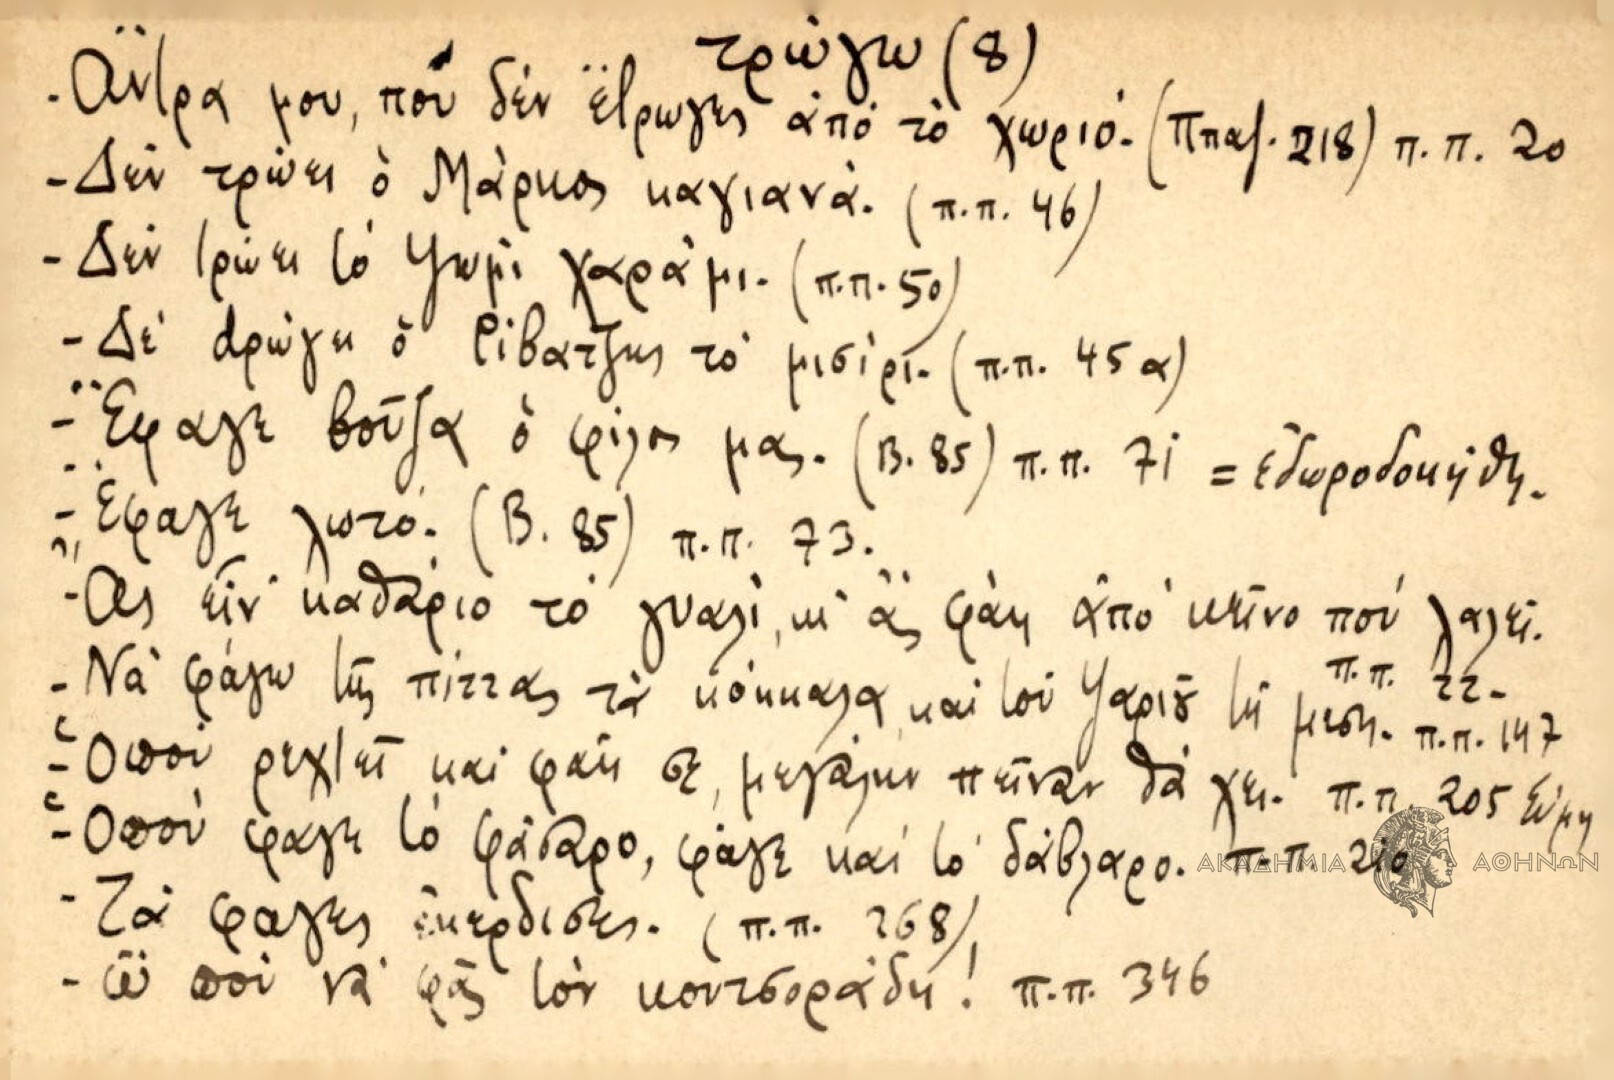 τρώγω (8)
- Ἄντρα μου, πού δέν ἔτρωγες ἀπό τό χωριό. (Ππαγ. 218) π.π. 20
- Δέν τρώει ὁ Μάρκος καγιανά. (π.π. 46)
- Δέν τρώει τό ψωμί χαράμι. (π.π. 50)
- Δέ dρώγει ὁ Ρίβατζης τό μισίρι. (π.π. 45α)
- Ἔφαγε βοῦζα ὁ φίλος μας. (Β. 85) π.π. 71 = ἐδωροδοκήθη.
- Ἔφαγε λωτό. (Β. 85) π.π. 73.
- Ἄς εἶν' καθάριο τό γυαλί, κι' ἄς φάῃ ἀπό κεῖνο πού λαλεῖ.
π.π. 22-
- Νά φάγω τῆς πίττας τά κόκκαλα καί τοῦ ψαριοῦ τή μέση. π.π. 147
- Ὁποὺ ρεχτεῖ καί φάῃ σε, μεγάλην πεῖναν θά χει. π.π. 205 Σύμη
- Ὁπού φαγε τό φάσαρο, φάγε καί τό δάβλαρο. π.π. 210
- Τά φαγες ἐκέρδισες. (π.π. 268)
- Ὤ πού νά φᾶς τόν κουτσοράδη! π.π. 346
ΑΚΑΔΗΜΙΑ ΑΘΗΝΩΝ